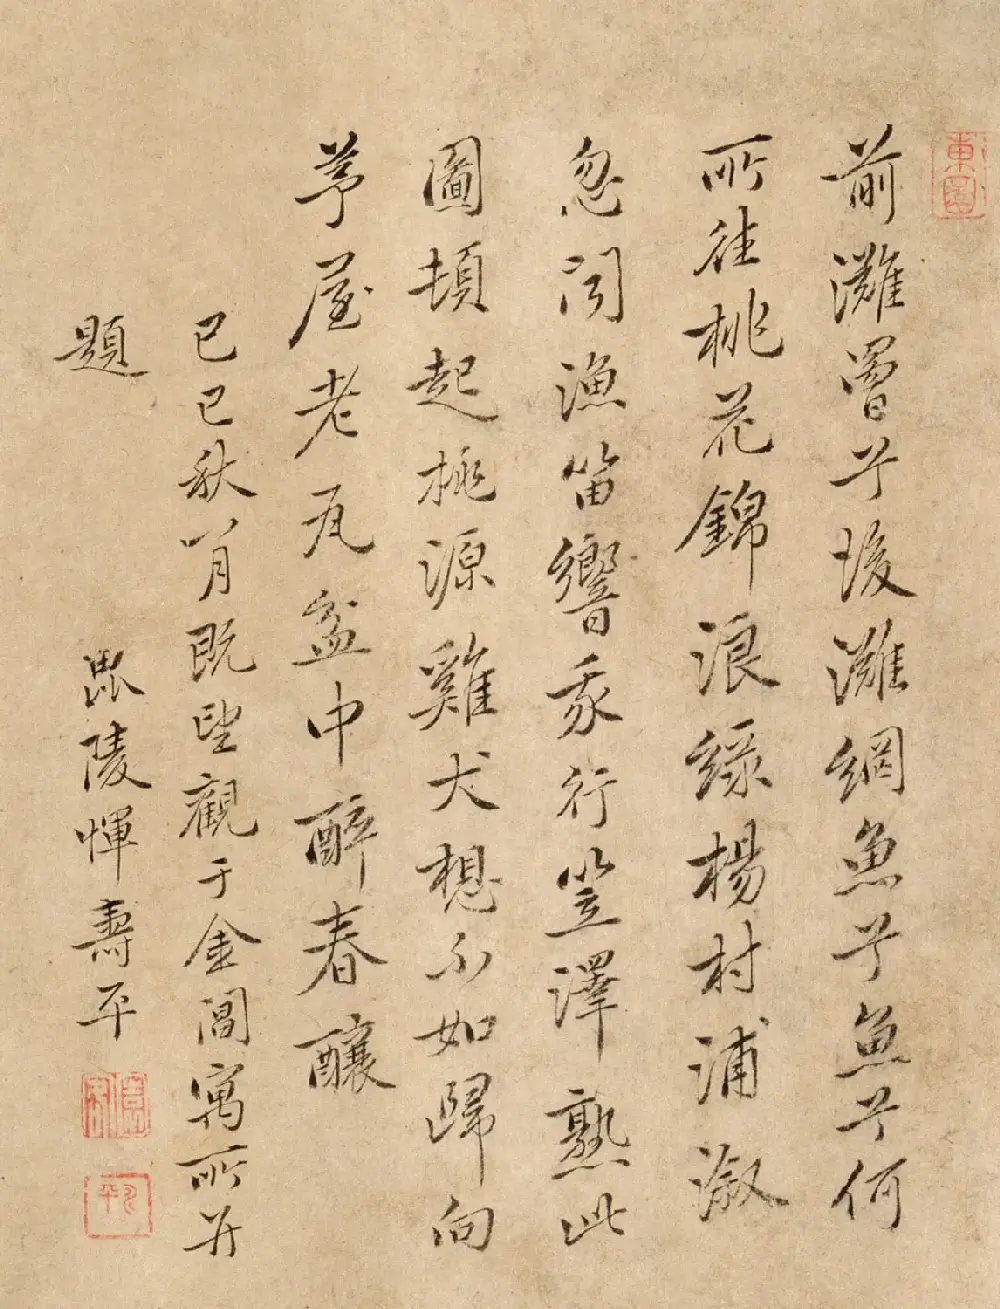 東園
前灘罾兮後灘網魚兮魚兮何
所往桃花錦浪綠楊村浦漵
忽聞漁笛響我行笠澤熟此
圖頓起桃源雞犬想不如歸向
茅屋老瓦盆中醉春釀
己巳秋八月既望觀于金閶寓所并
題
毘陵惲壽平